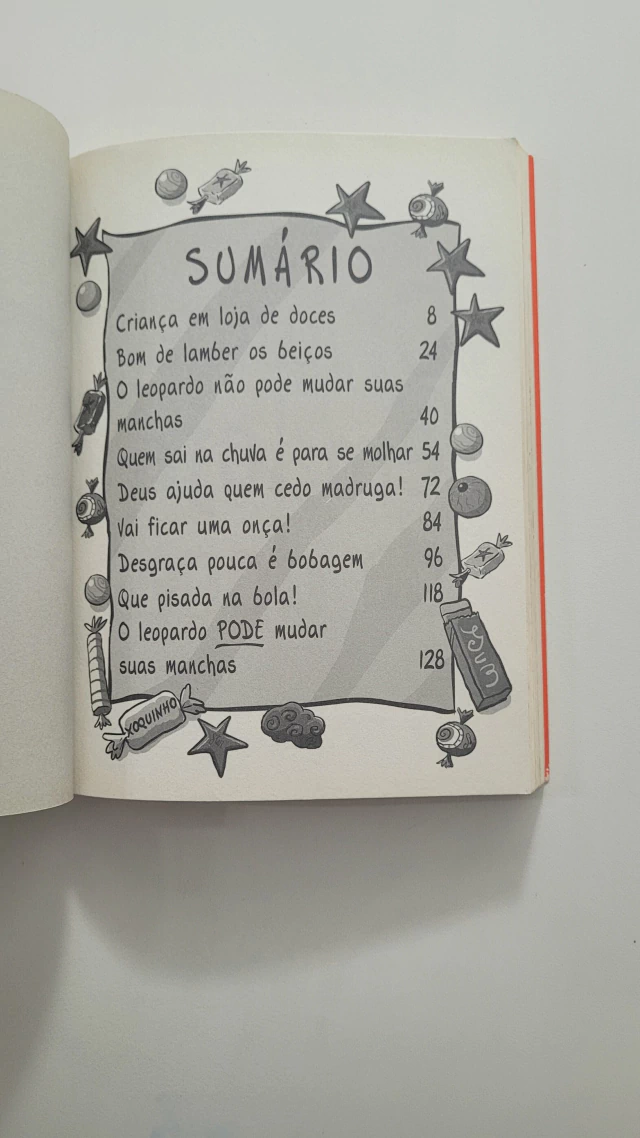 SUMÁRIO
Criança em loja de doces 8
Bom de lamber os beiços 24
O leopardo não pode mudar suas
manchas 40
Quem sai na chuva é para se molhar 54
Deus ajuda quem cedo madruga! 72
Vai ficar uma onça! 84
Desgraça pouca é bobagem 96
Que pisada na bola! 118
O leopardo PODE mudar
suas manchas 128
GUM
XOQUINHO